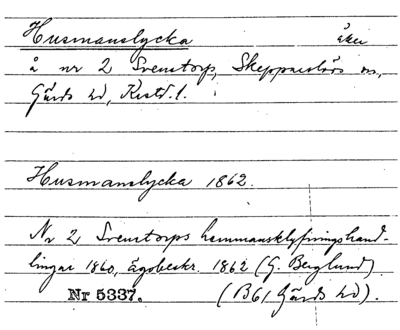 Husmanslycka åker
å nr 2 Svenstorp, Skepparslövs sn,
Gärds hd, Krstd. l.
Husmanslycka 1862.
Nr 2 Svenstorps hemmansklyfningshand-
lingar 1860, Ägobeskr. 1862 (G. Berglund)
Nr 5337. (B61 Gärds hd).